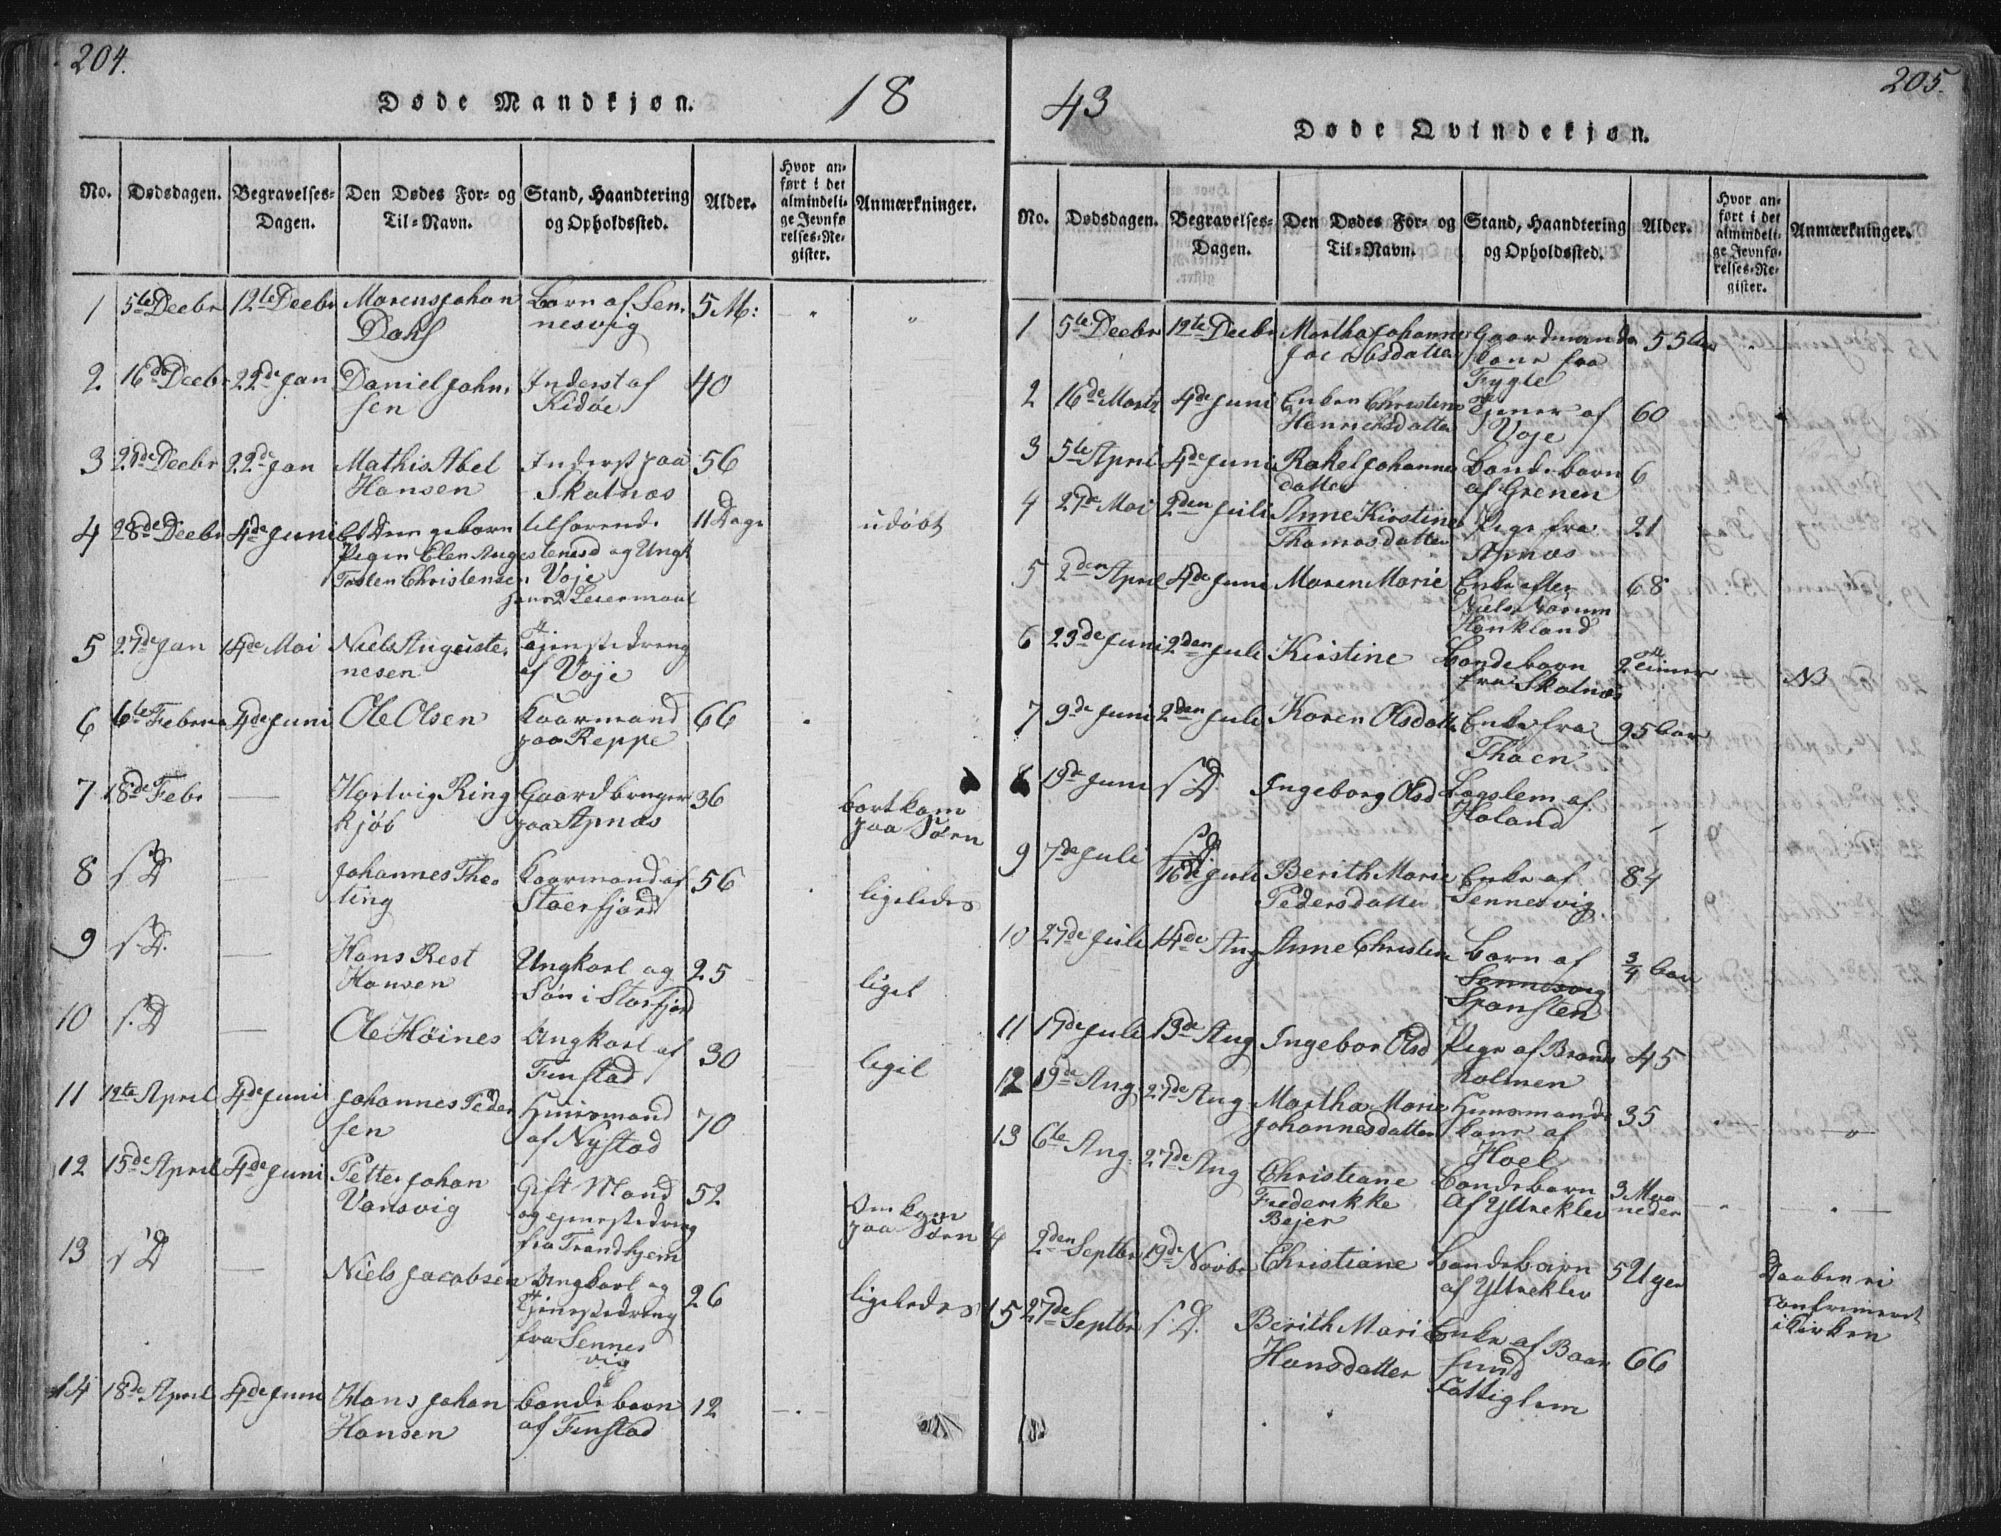 204.
Døde Mandkjøn.
18
No.
Dødsdagen.
Begravelses-Dagen.
Den Dødes For- og Til-Navn.
Stand, Haandtering og Opholdssted.
Alder.
Hvor anført i det almindelige Jevnførelses-Register.
Anmærkninger.
1 5te Decbr 12te Decbr Marcus Johan Barn af Sen- 5 M:
Dahl nesvig
2 16de Decbr 22de Jan Daniel John- Inderst af 40
sen Kidøe
3 21de Decbr 22de Jan Mathis Abel Inderst paa 56
Hansen Skotnæs
4 28de Decbr 4de Juni Et Døen geborn tilhørende 11 Dage udøbt
Pigen Elen Augestenesd og Ungk
Tosten Christensen Voje
hans 2 Leiermaal
5 27de Jan 14de Mai Niels Auguste- Tjenestedreng
nesen af Voje
6 6te Februa 4de Juni Ole Olsen Kaarmand 66
paa Reppe
7 18de Febr — Hartvig Ring Gaardbruger 36 bortkom
kjøb paa Apnæs paa Søen
8 s. D — Johannes Tho- Kaarmand af 56 ligeledes
ting Stoerfjord
9 s. D. — Hans Rest Ungkarl og 25 liget
Hansen Søn i Storfjord
10 s. D — Ole Høines Ungkarl af 30 liget
Finstad
11 12te April 4de Juni Johannes Peder Huusmand 70
sen af Nystad
12 15de April 4de Juni Petter Johan Gift Mand 52 Omkom
Vansvig og tjenestedreng paa Søen
fra Trondhjem
13 s. D — Niels Jacobsen Ungkarl og 26 ligeledes
Tjenestedreng
fra Sennes
vig
14 18de April 4de Juni Hans Johan Bondebarn 12
Hansen af Finstad
205.
43
Døde Qvindekjøn.
No.
Dødsdagen.
Begravelses-Dagen.
Den Dødes For- og Til-Navn.
Stand, Haandtering og Opholdssted.
Alder.
Hvor anført i det almindelige Jevnførelses-Register.
Anmærkninger.
1 5te Decbr 12te Decbr Martha Johanne Gaardmands 55 Aar
Jacobsdatter kone fra
Fygle
2 16de Marts 4de Juni Enken Christine Tjener af 60
Henrichsdatter Voje
3 5te April 4de Juni Rakel Johannes Bondebarn 6
datter af Grenen
4 27de Mai 2den Juli Anne Kirstine Pige fra 21
Thomasdatter Apnæs
5 2den April 4de Juni Maren Marie Enke efter 68
Niels Nørum
Hankland
6 23de Juni 2den Juli Kirstine Bondebarn 2 Timer — NB
fra Skotnæs
7 9de Juni 2den Juli Karen Olsdatt Enke fra 95 Aar
Thoen
8 19de Juni s. D. Ingeborg Olsd Lægslem af
Holand
9 7de Juli s. D. 16de Juli Berith Marie Enke af 84
Pedersdatter Sennesvig.
10 27de Juli 14de Aug Anne Christin Barn af 3/4 Aar
Sennesvig
Spansten
11 17de Juli 13de Aug Ingebor Olsd Pige af Brands 45
holmen
12 19de Aug. 27de Aug Martha Marie Huusmands 35
Johannesdatter kone af
Hoel
13 6te Aug. 27de Aug Christiane Bondebarn 3 Maa
Frederikke af Yttreklev neder
Bejer
14 2den Septbr 19de Novbr Christiane Bondebarn 5 Uger Daaben ei
af Yttreklev confirmeret
i Kirken
15 27de Septbr s. D. Berith Mari Enke af Baar 66
Hansdatter sund
Fattiglem